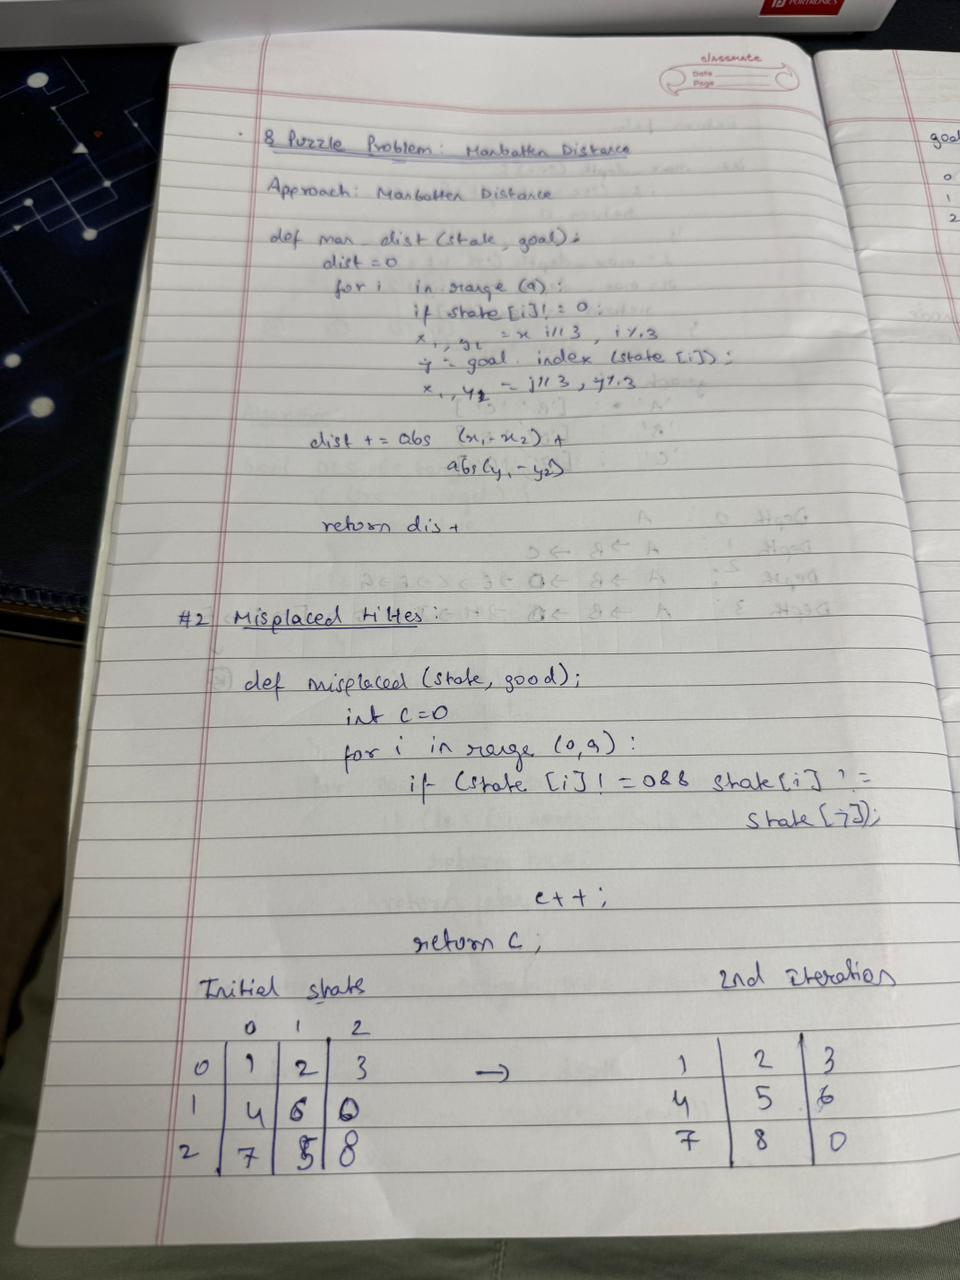 PORTRONICS
classmate
Date
Page
8 Puzzle Problem: Manhatten Distance
Approach: Manhatten Distance
def man_dist (state, goal);
dist = 0
for i in range (9):
if state [i]! = 0:
x1, y2 = x i//3, i%3
j = goal. index (state [i]);
x1, y2 = j//3, y%3
dist + = abs (x1 - x2) +
abs(y1 - y2)
return dist
#2 Misplaced tiltes:
def misplaced (state, good);
int c=0
for i in range (0,9):
if (state [i]! = 0&& state[i] ! =
state [j]);
c++;
return c;
Initial state 2nd iteration
0 1 2
0 1 2 3 → 1 2 3
1 4 6 0 4 5 6
2 7 5 8 7 8 0
goal
0
1
2